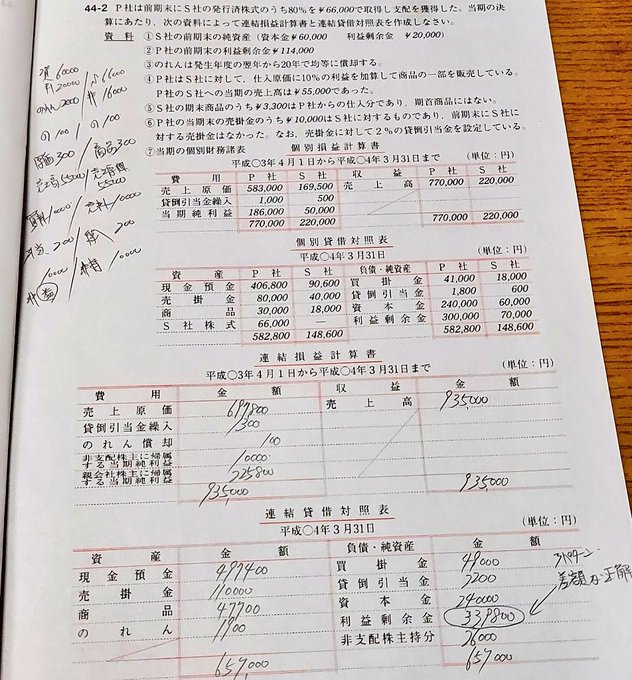 44-2 P社は前期末にS社の発行済株式のうち80%を¥66,000で取得し支配を獲得した。当期の決
算にあたり、次の資料によって連結損益計算書と連結貸借対照表を作成しなさい。
資料 ①S社の前期末の純資産（資本金¥60,000 利益剰余金 ¥20,000）
②P社の前期末の利益剰余金¥114,000
③のれんは発生年度の翌年から20年で均等に償却する。
④P社はS社に対して、仕入原価に10%の利益を加算して商品の一部を販売している。
P社のS社への当期の売上高は¥55,000であった。
⑤S社の期末商品のうち¥3,300はP社からの仕入分であり、期首商品にはない。
⑥P社の売掛金のうち¥10,000はS社に対するものであり、前期末にS社に
対する売掛金はなかった。なお、売掛金に対して2%の貸倒引当金を設定している。
⑦当期の個別財務諸表
個別損益計算書
平成○3年4月1日から平成○4年3月31日まで (単位：円)
費用 P社 S社 収益 P社 S社
売上原価 583,000 169,500 売上高 770,000 220,000
貸倒引当金繰入 1,000 500
当期純利益 186,000 50,000
770,000 220,000 770,000 220,000
個別貸借対照表
平成○4年3月31日 (単位：円)
資産 P社 S社 負債・純資産 P社 S社
現金預金 406,800 90,600 買掛金 41,000 18,000
売掛金 80,000 40,000 貸倒引当金 1,800 600
商品 30,000 18,000 資本金 240,000 60,000
S社株式 66,000 利益剰余金 300,000 70,000
582,800 148,600 582,800 148,600
連結損益計算書
平成○3年4月1日から平成○4年3月31日まで (単位：円)
費用 金額 収益 金額
売上原価 697,800 売上高 935,000
貸倒引当金繰入 1,300
のれん償却 100
非支配株主に帰属する当期純利益 10,000
親会社株主に帰属する当期純利益 225,800
935,000 935,000
連結貸借対照表
平成○4年3月31日 (単位：円)
資産 金額 負債・純資産 金額
現金預金 497400 買掛金 49,000
売掛金 110000 貸倒引当金 2200
商品 47700 資本金 240000
のれん 1900 利益剰余金 339800
非支配株主持分 26000
657,000 657,000